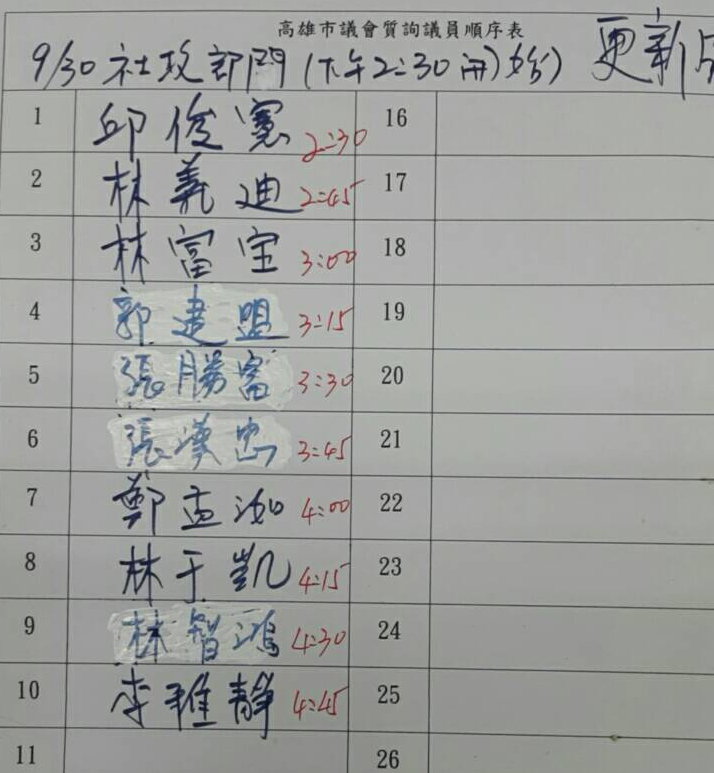 高雄市議會質詢議員順序表
9/30 社政部門 (下午2:30開始) 更新
1 邱俊憲 2:30 16
2 林義迪 2:45 17
3 林富宝 3:00 18
4 郭建盟 3:15 19
5 張勝富 3:30 20
6 張漢忠 3:45 21
7 鄭孟洳 4:00 22
8 林于凱 4:15 23
9 林智鴻 4:30 24
10 李雅靜 4:45 25
11 26